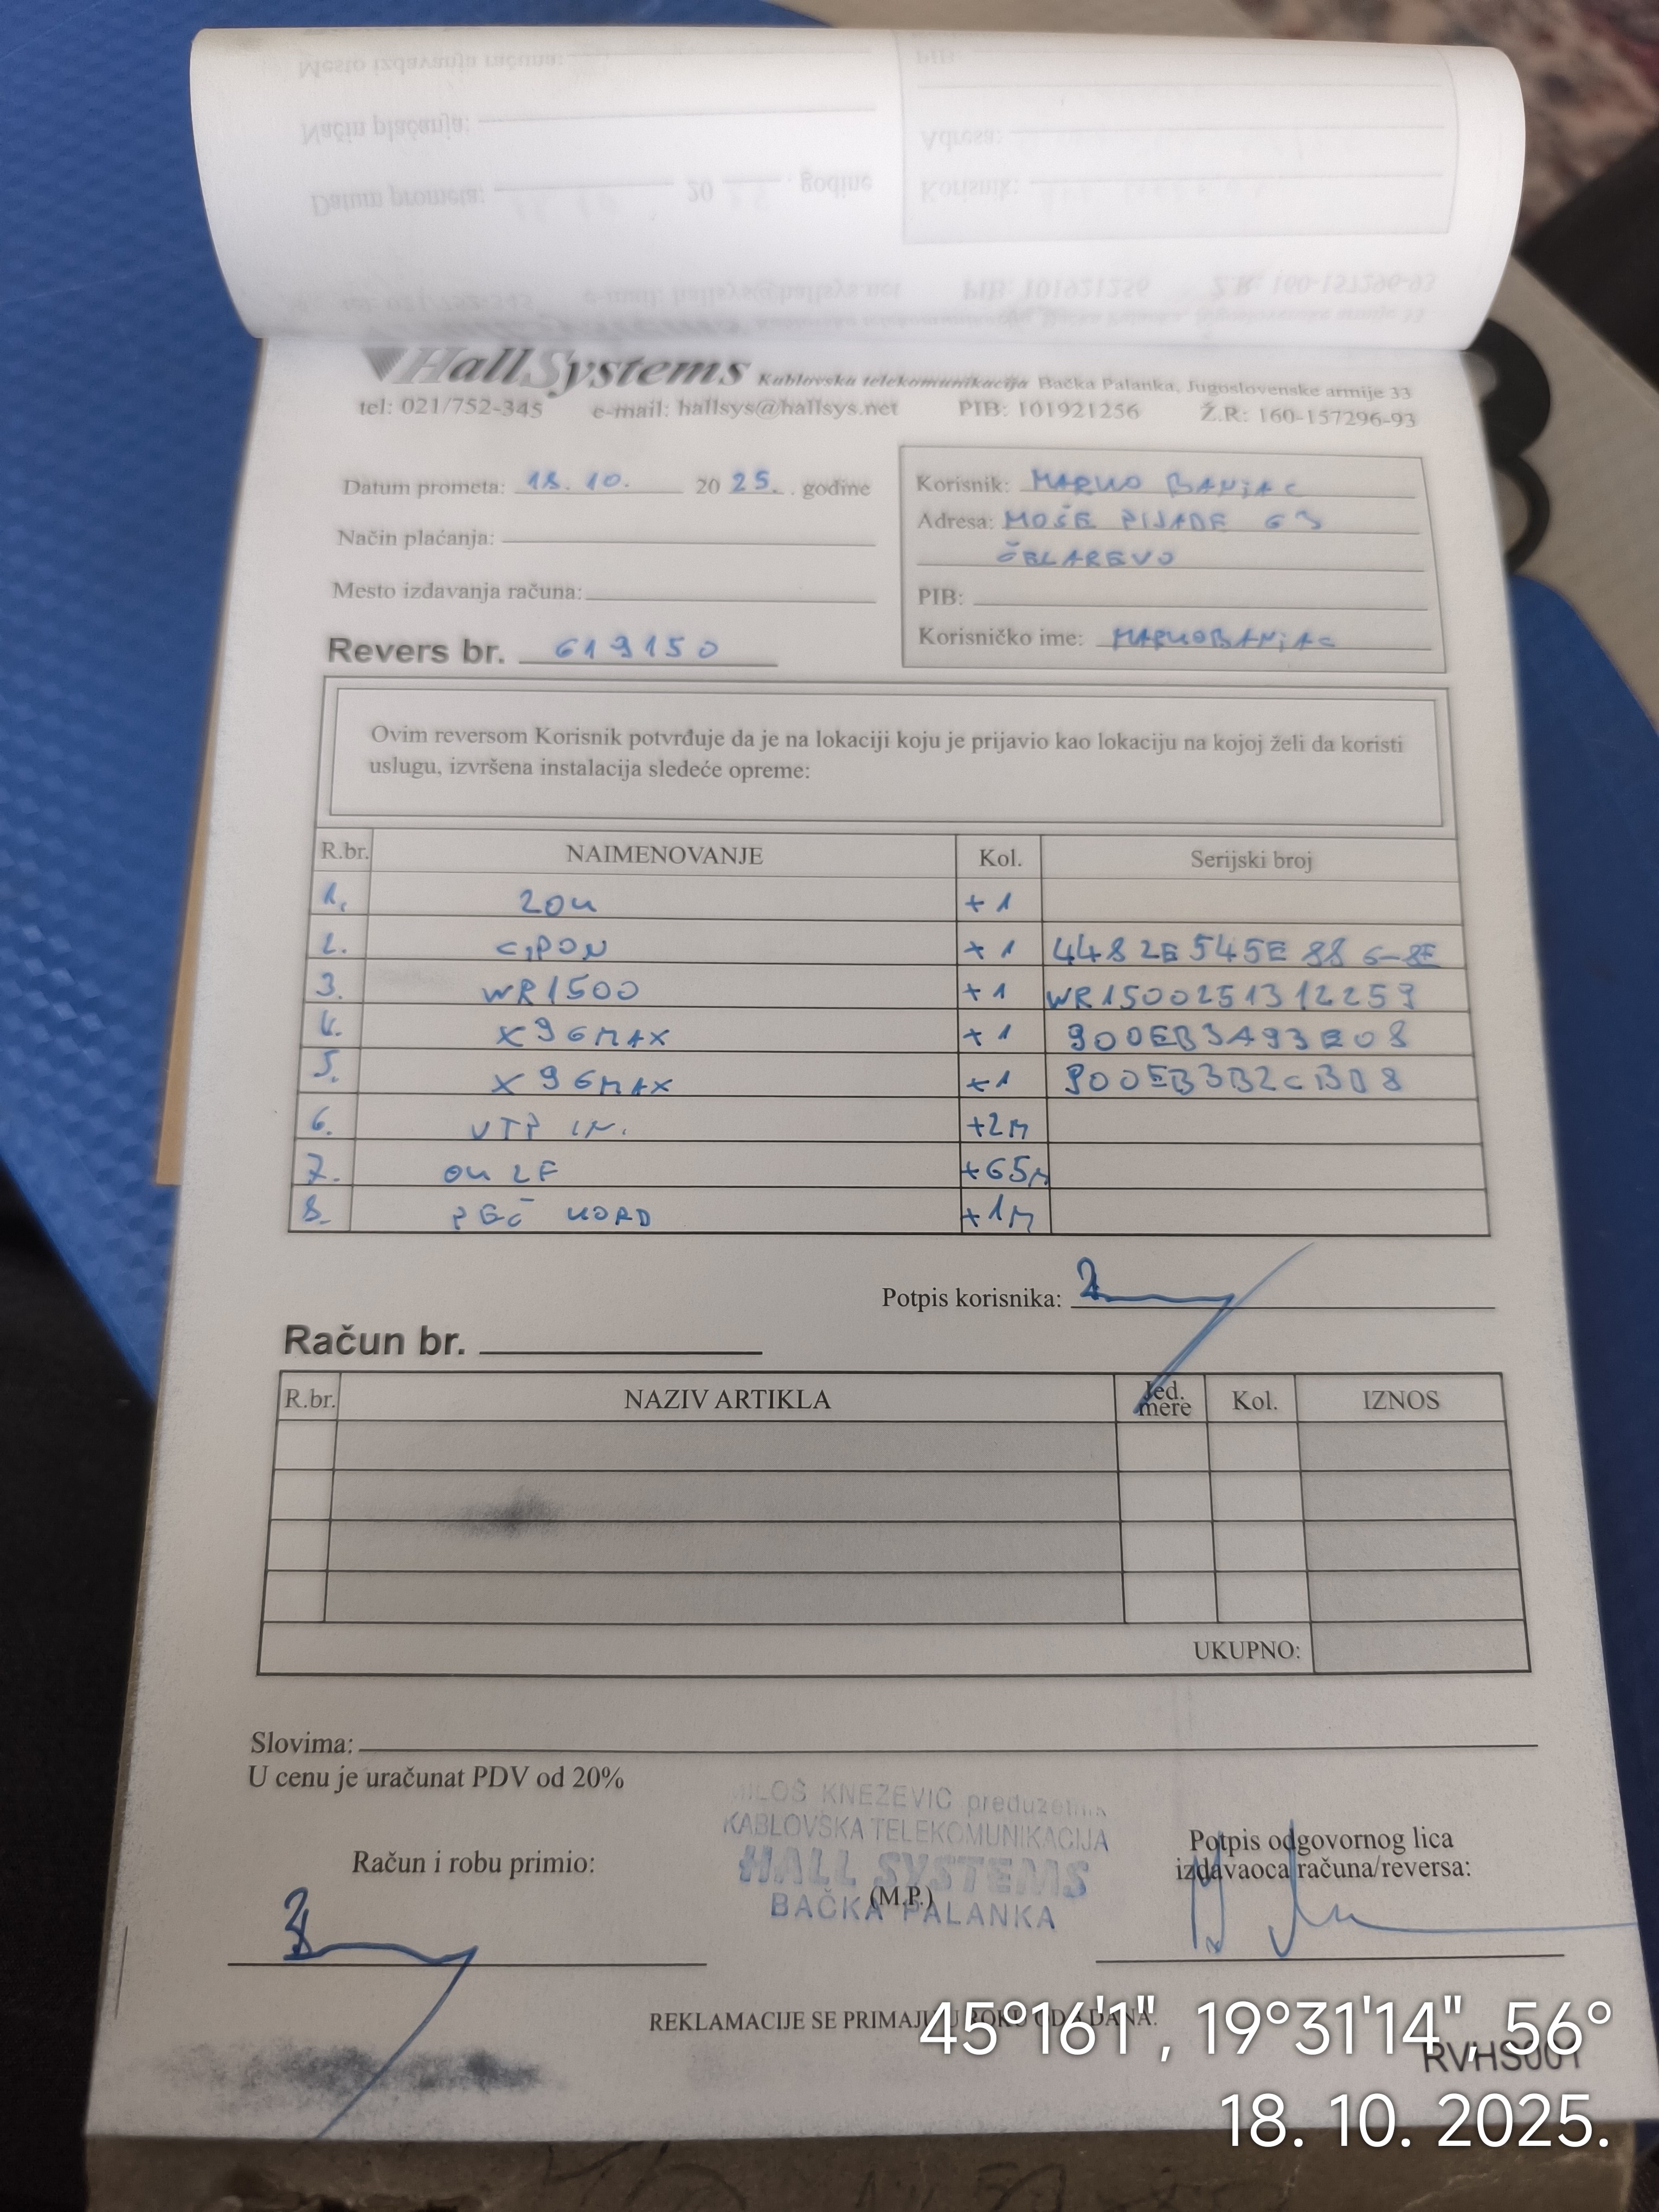 HallSystems Kablovska telekomunikacija Bačka Palanka, Jugoslovenske armije 33
tel: 021/752-345 e-mail: hallsys@hallsys.net PIB: 101921256 Ž.R: 160-157296-93
Datum prometa: 18. 10. 20 25. . godine
Način plaćanja:
Mesto izdavanja računa:
Revers br. 619150
Korisnik: MARKO BANJAC
Adresa: MOŠE PIJADE 63
ČELAREVO
PIB:
Korisničko ime: MARKOBANJAC
Ovim reversom Korisnik potvrđuje da je na lokaciji koju je prijavio kao lokaciju na kojoj želi da koristi
uslugu, izvršena instalacija sledeće opreme:
R.br. NAIMENOVANJE Kol. Serijski broj
1. ZOK +1
2. GPON +1
3. WR1500 +1 WR1500251312259
4. X96MAX +1 900EB3A93E08
5. X96MAX +1 900EB3B2CB08
6. UTP IN. +2M
7. OK 2F +65M
8. PEČ KORD +1M
Potpis korisnika:
Račun br.
R.br. NAZIV ARTIKLA Jed. mere Kol. IZNOS
UKUPNO:
Slovima:
U cenu je uračunat PDV od 20%
MILOŠ KNEŽEVIĆ preduzetnik
KABLOVSKA TELEKOMUNIKACIJA
HALL SYSTEMS
BAČKA PALANKA
(M.P.)
Račun i robu primio:
Potpis odgovornog lica
izdavaoca računa/reversa:
REKLAMACIJE SE PRIMAJU U ROKU OD DANA.
RVHS001
45°16'1", 19°31'14", 56°
18. 10. 2025.